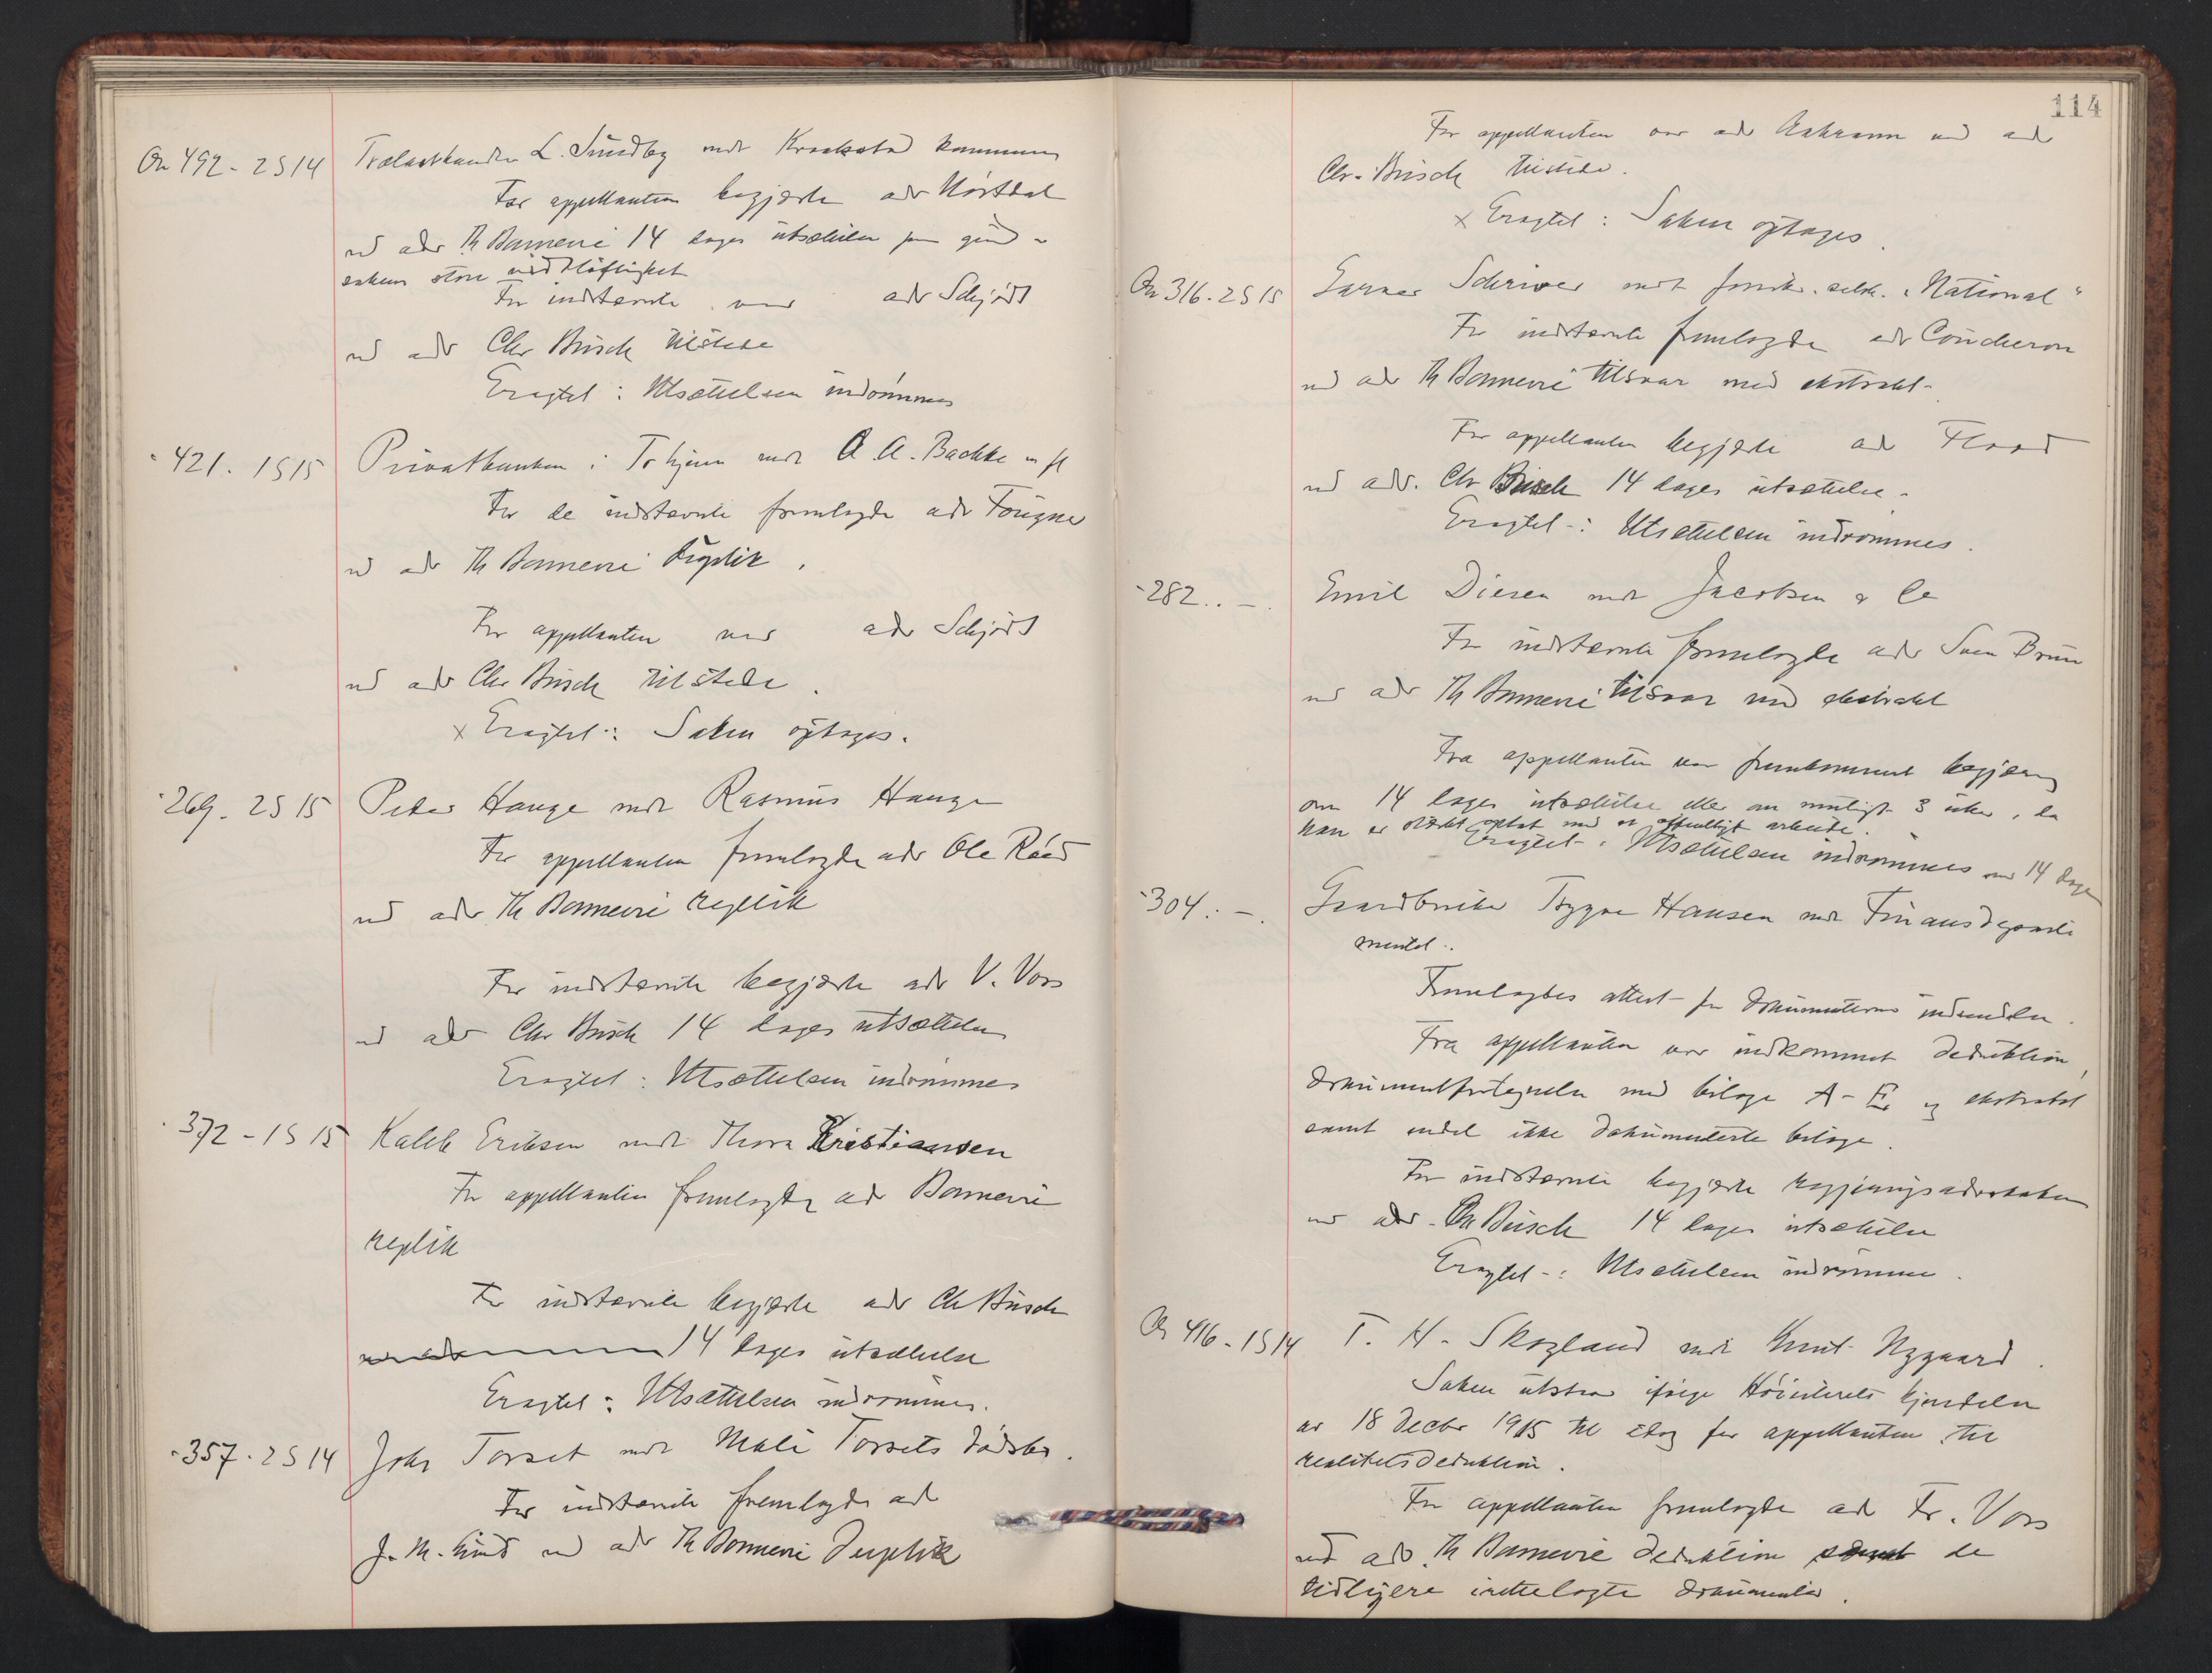 On 492 - 2S14 Trælasthandler L. Sundby mot Kraakstad kommune
For appellanten begjærte adv Hørtdal
ved adv Th Bonnevie 14 dages utsættelse paa grund av
sakens store vidtløftighet
For indstevnte var adv Schjødt
ved adv Chr Busch tilstede
Eragtet : Utsættelsen indrømmes
" 421. 1S15 Privatbanken i Trhjem mot A. A. Bachke m fl
For de indstevnte fremlagde adv Fougner
ved adv Th Bonnevie duplik.
For appellanten var adv Schjødt
ved adv Chr Busch tilstede.
x Eragtet : Saken optages.
" 269. 2S15 Peder Hauge mot Rasmus Hauge
For appellanten fremlagde adv Ole Røed
ved adv Th Bonnevie replik
For indstevnte begjærte adv V. Voss
ved adv Chr Busch 14 dages utsættelse
Eragtet : Utsættelsen indrømmes
" 372 - 1S15 Kaleb Eriksen mot Thora Kristiansen
For appellanten fremlagde adv Bonnevie
replik
For indstevnte begjærte adv Chr Busch
14 dages utsættelse
Eragtet : Utsættelsen indrømmes.
" 357. 2S14 Johs Torset mot Mali Torsets dødsbo.
For indstevnte fremlagde adv
J. M. Lund ved adv Th Bonnevie Duplik
114
For appellanten var adv Aakrann ved adv
Chr. Busch tilstede.
x Eragtet : Saken optages.
On 316. 2S15 Garver Schriwer mot forsikr. selsk. "National"
For indstevnte fremlagde adv Coucheron
ved adv Th Bonnevie tilsvar med ekstrakt.
For appellanten begjærte adv Flood
ved adv. Chr Busch 14 dages utsættelse.
Eragtet : Utsættelsen indrømmes.
" 282. . - . Emil Diesen mot Jacobsen & Co
For indstevnte fremlagde adv Sven Bruun
ved adv Th Bonnevie tilsvar med ekstrakt
Fra appellanten var fremkommet begjæring
om 14 dages utsættelse eller om muligt 3 uker, da
han er stærkt optat med et offentligt arbeide.
Eragtet : Utsættelsen indrømmes med 14 dage
" 304. - . Gaardbruker Trygve Hansen mot Finansdeparte
mentet.
Fremlagdes attest for dokumenternes indsendelse.
Fra appellanten var indkommet deduktion,
dokumentfortegnelse med bilage A - E og ekstrakt
samt endel ikke dokumenterte bilage.
For indstevnte begjærte regjeringsadvokaten
ved adv. Chr Busch 14 dages utsættelse
Eragtet : Utsættelsen indrømmes.
On 416 - 1S14 T. H. Skogland mot Knut Nygaard.
Saken utstaar ifølge Høiesterets kjendelse
av 18 Decbr 1915 til idag for appellanten til
realitetsdeduktion.
For appellanten fremlagde adv Fr. Voss
ved adv Th Bonnevie deduktion samt de
tidligere irettelagte dokumenter.